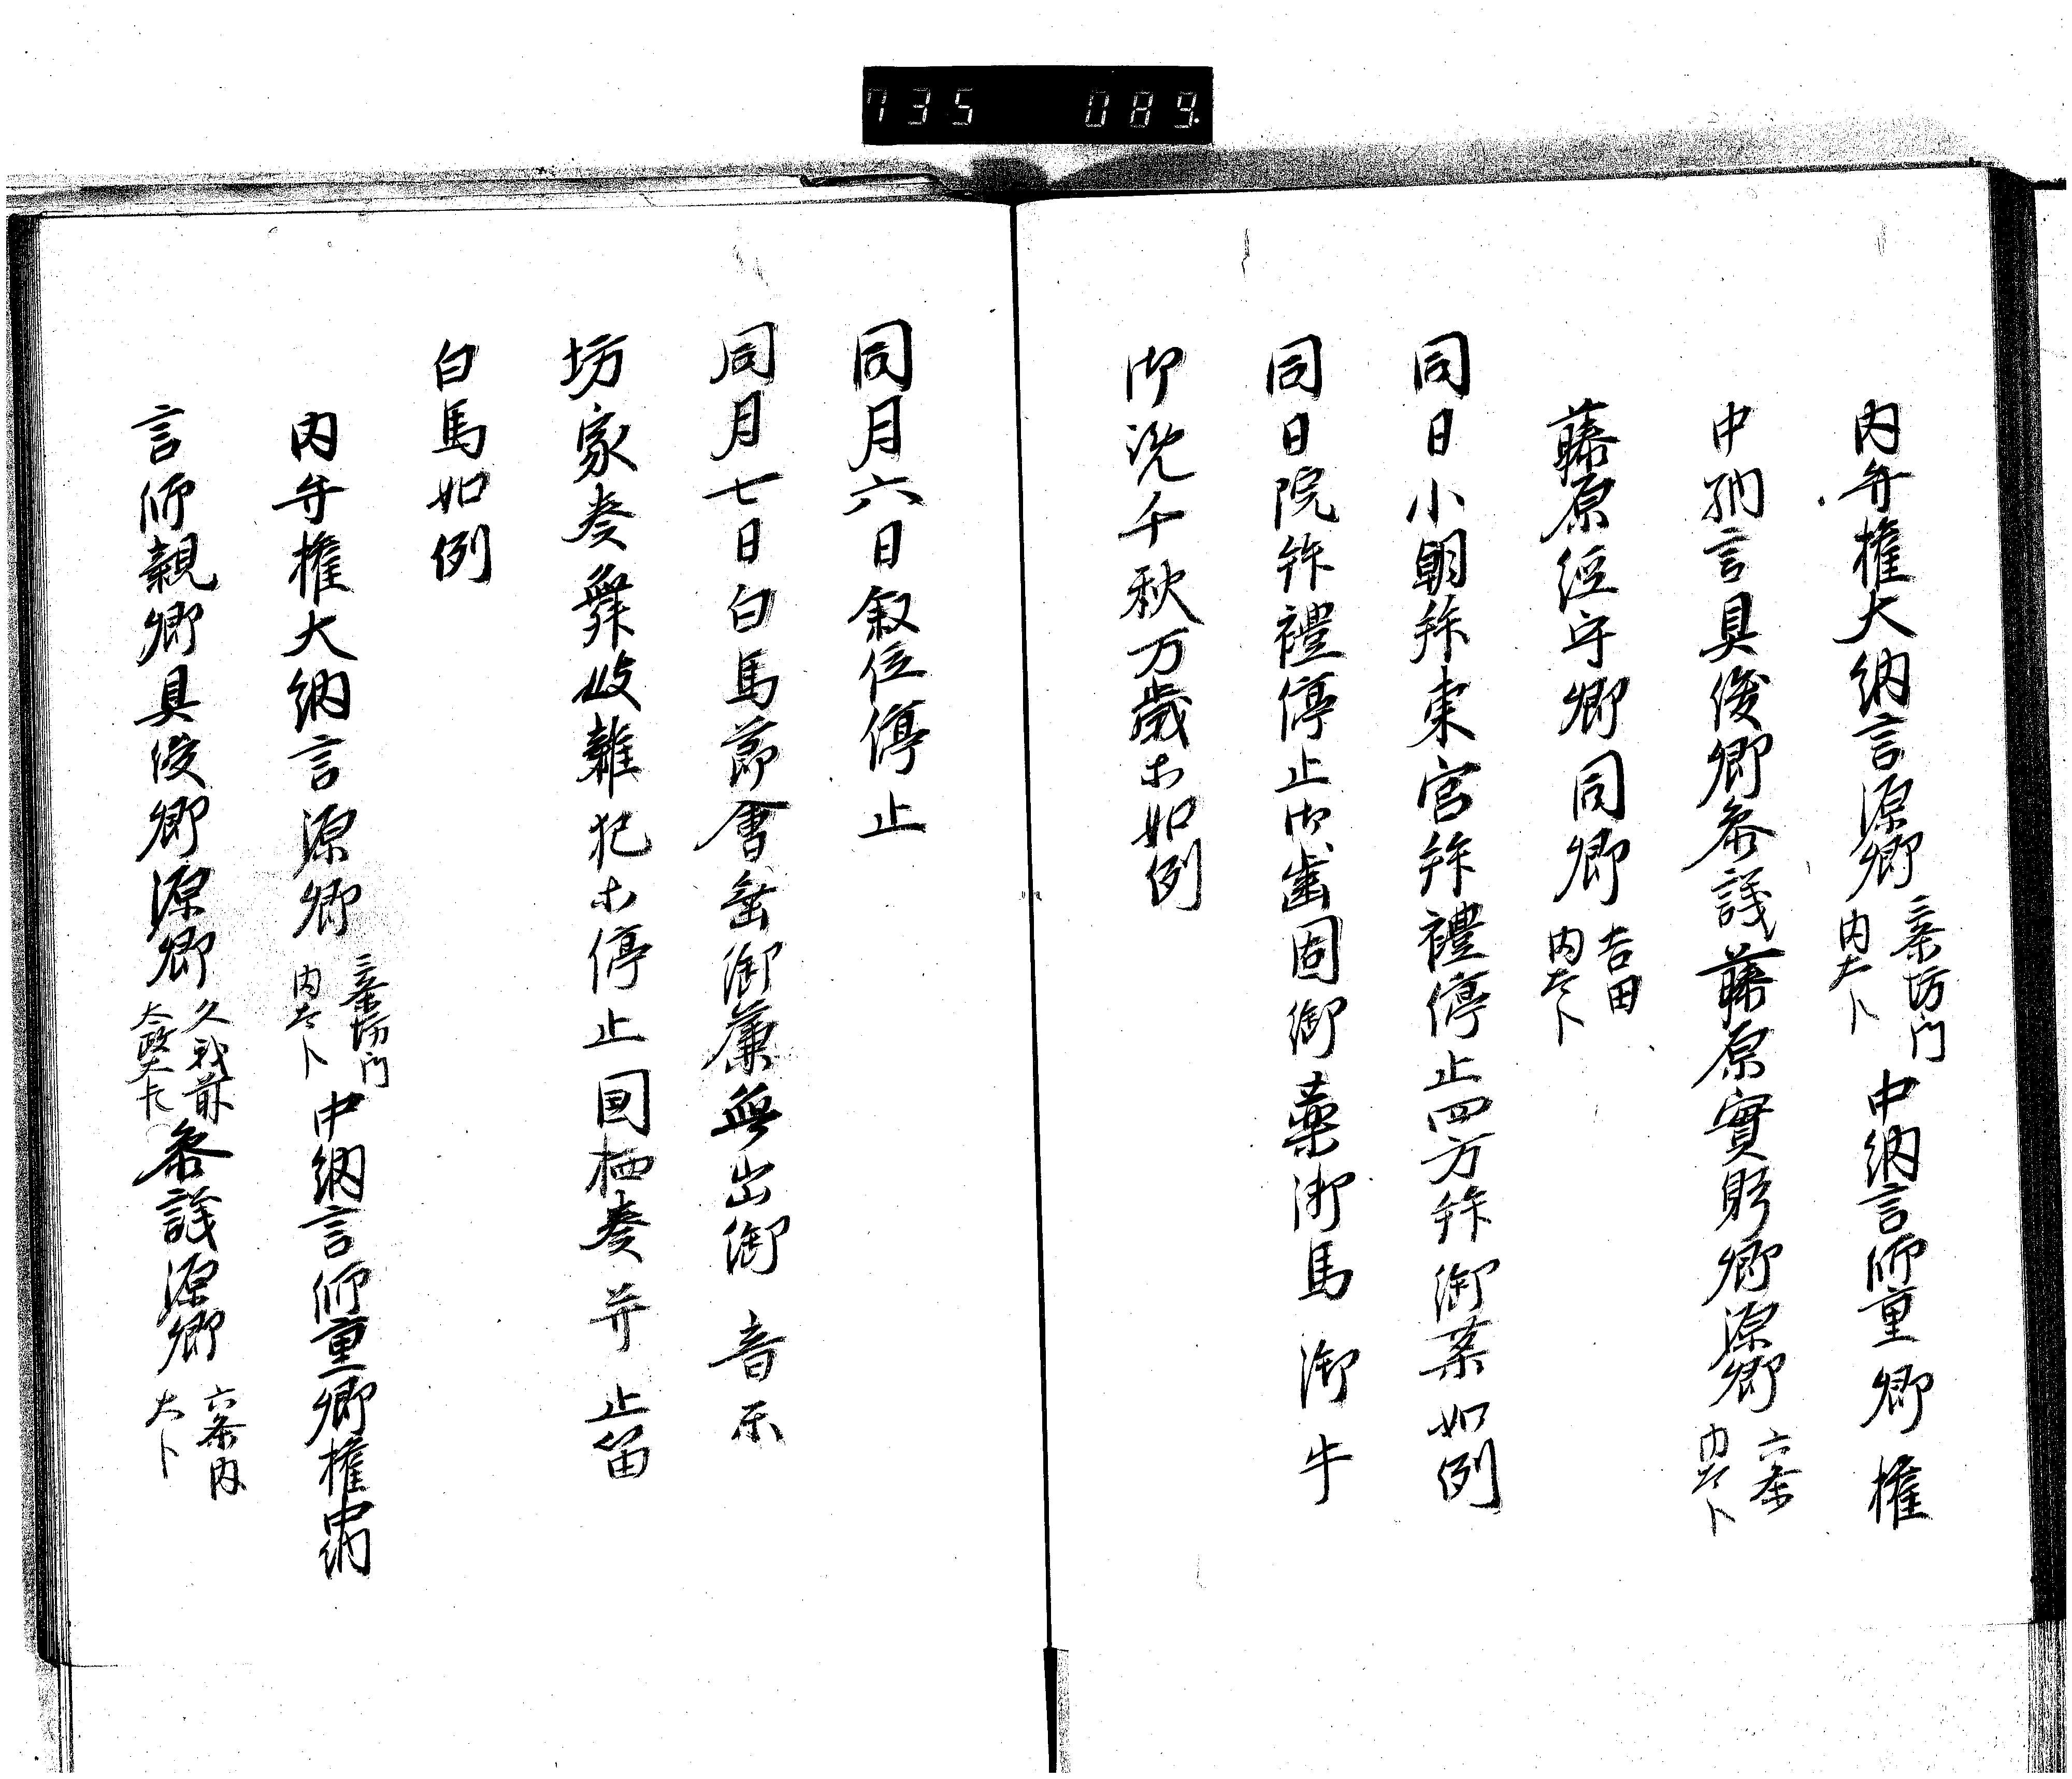 735 089
内弁権大納言源卿三条坊門内大卜中納言師重卿権
中納言具俊卿参議藤原實躬卿源卿六条内大卜
藤原経守卿同卿吉田内大卜
同日小朝拝東宮拝禮停止四方拝御薬如例
同日院拝禮停止御歯固御薬御馬御牛
御洗千秋万歳木如例
同月六日叙位停止
同月七日白馬節會垂御簾無出御音樂
坊家奏舞妓雑犯木停止国栖奏并止笛
白馬如例
内弁権大納言源卿三条坊門内大卜中納言師重卿権中納
言師親卿具俊卿源卿久我前太政大卜参議源卿六条内大卜